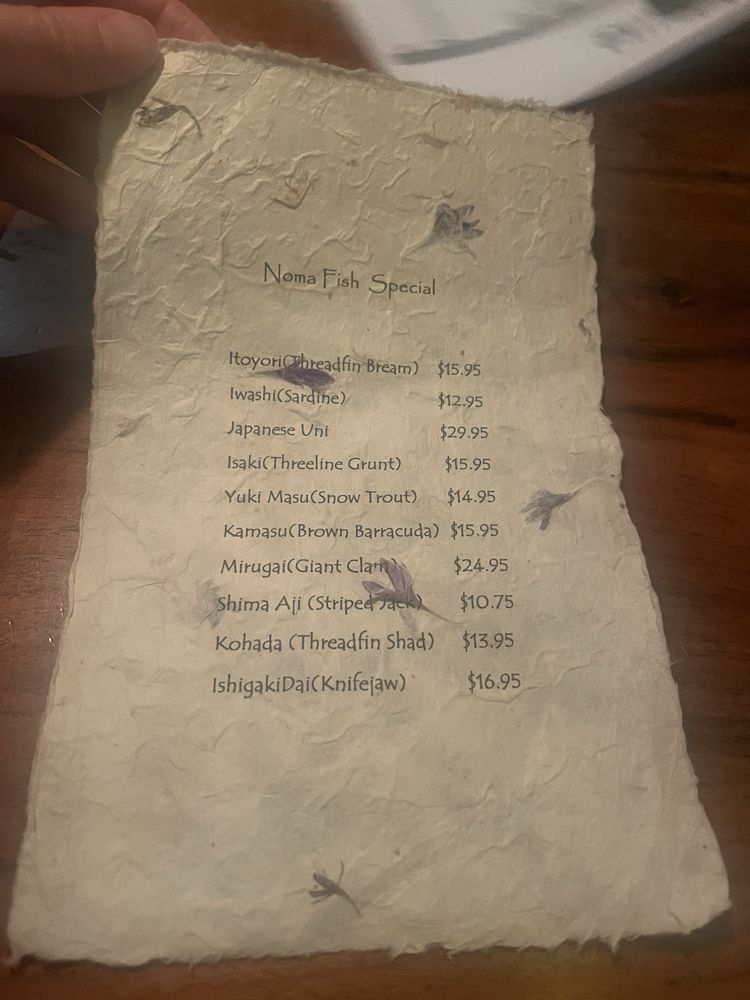 Noma Fish Special
Itoyori(Threadfin Bream) $15.95
Iwashi(Sardine) $12.95
Japanese Uni $29.95
Isaki(Threeline Grunt) $15.95
Yuki Masu(Snow Trout) $14.95
Kamasu(Brown Barracuda) $15.95
Mirugai(Giant Clam) $24.95
Shima Aji (Striped Jack) $10.75
Kohada (Threadfin Shad) $13.95
IshigakiDai(Knifejaw) $16.95